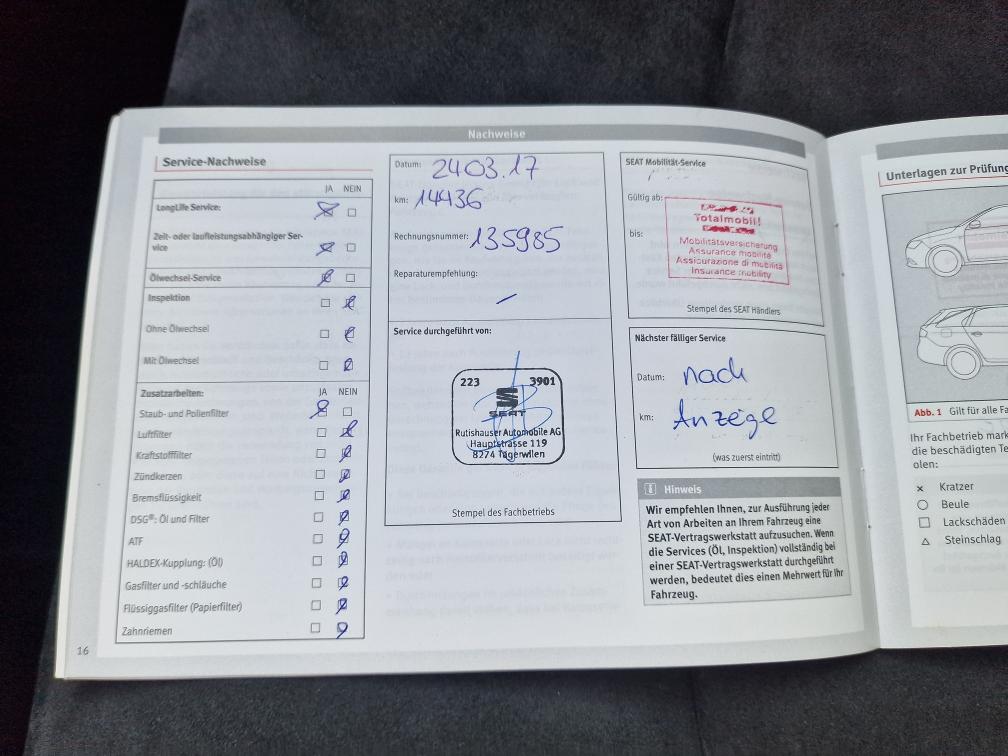 Nachweise
Service-Nachweise
JA NEIN
LongLife Service:
Zeit- oder laufleistungsabhängiger Ser-
vice
Ölwechsel-Service
Inspektion
Ohne Ölwechsel
Mit Ölwechsel
Zusatzarbeiten: JA NEIN
Staub- und Pollenfilter
Luftfilter
Kraftstofffilter
Zündkerzen
Bremsflüssigkeit
DSG®: Öl und Filter
ATF
HALDEX-Kupplung: (Öl)
Gasfilter und -schläuche
Flüssiggasfilter (Papierfilter)
Zahnriemen
16
Datum: 24 03. 17
km: 14436
Rechnungsnummer: 135985
Reparaturempfehlung:
–
Service durchgeführt von:
223 3901
SEAT
Rutishauser Automobile AG
Hauptstrasse 119
8274 Tägerwilen
Stempel des Fachbetriebs
SEAT Mobilität-Service
Gültig ab:
bis:
Totalmobil!
Mobilitätsversicherung
Assurance mobilité
Assicurazione di mobilità
Insurance mobility
Stempel des SEAT Händlers
Nächster fälliger Service
Datum: nach
km: Anzeige
(was zuerst eintritt)
Hinweis
Wir empfehlen Ihnen, zur Ausführung jeder
Art von Arbeiten an Ihrem Fahrzeug eine
SEAT-Vertragswerkstatt aufzusuchen. Wenn
die Services (Öl, Inspektion) vollständig bei
einer SEAT-Vertragswerkstatt durchgeführt
werden, bedeutet dies einen Mehrwert für Ihr
Fahrzeug.
Unterlagen zur Prüfung
Abb. 1 Gilt für alle
Ihr Fachbetrieb
die beschädigten
olen:
× Kratzer
○ Beule
□ Lackschäden
△ Steinschlag